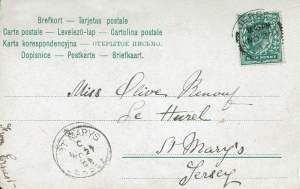 Brefkort – Tarjetas postale
Carte postale – Levelező-lap – Cartolina postale
Karta korespondencyjna – ОТКРЫТОЕ ПИСЬМО.
Dopisnice – Postkarte – Briefkaart.
Miss Olive Renouf
Le Hurel
St Mary's
Jersey
ST MARYS
JERSEY
From Ernest